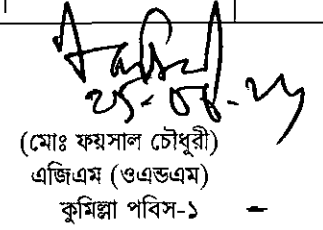 ২৫-০৬-২৩
(মোঃ ফয়সাল চৌধুরী)
এজিএম (ওএন্ডএম)
কুমিল্লা পবিস-১